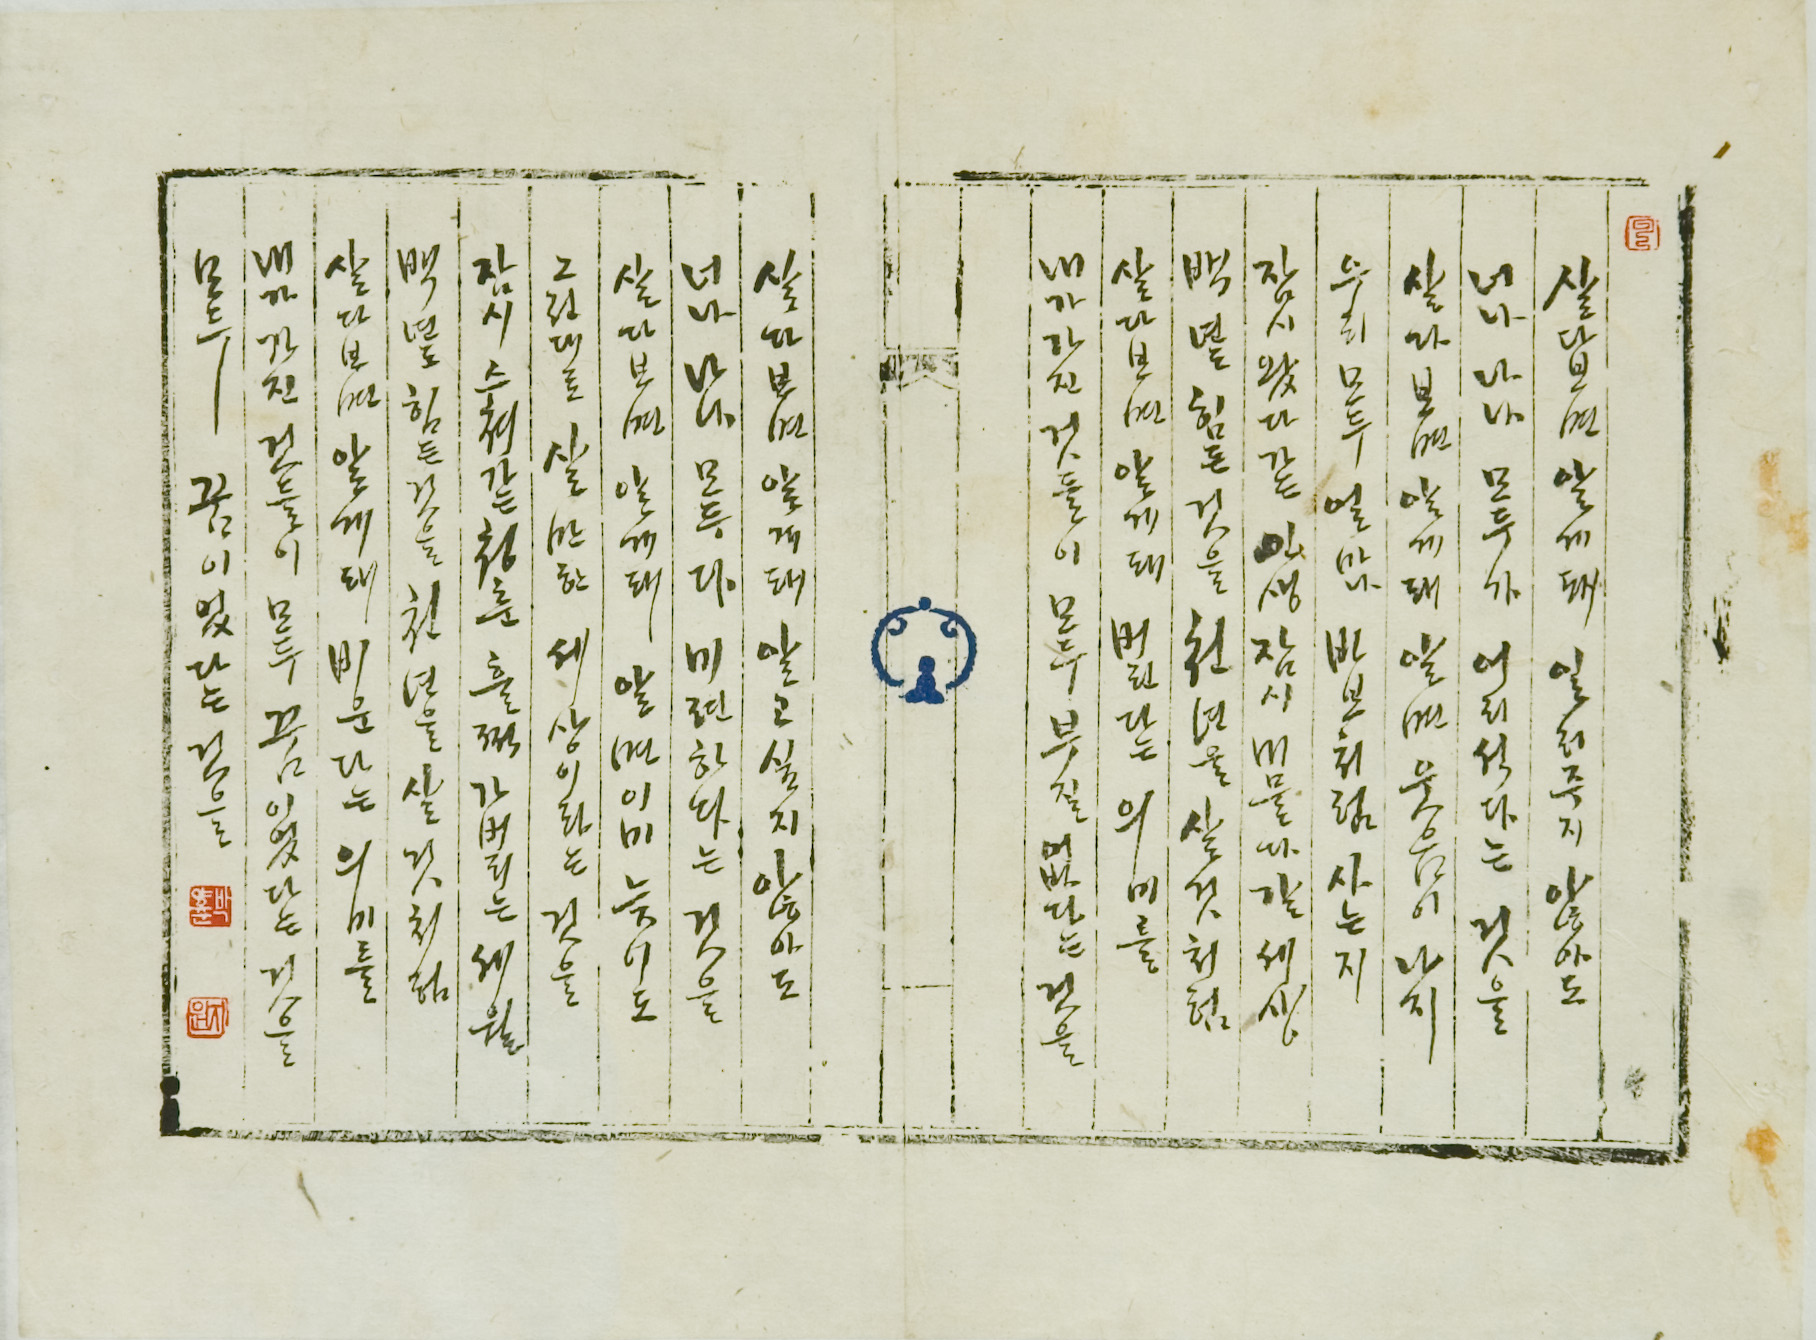 살다보면 알게돼 일러주지 않아도
너나 나나 모두가 어리석다는 것을
살다보면 알게돼 알면 웃음이 나지
우리 모두 얼마나 바보처럼 사는지
잠시왔다 가는 인생 잠시 머물다 갈 세상
백년도 힘든 것을 천년을 살 것처럼
살다보면 알게돼 버린다는 의미를
내가 가진 것들이 모두 부질없다는 것을
살다보면 알게돼 알고싶지 않아도
너나 나나 모두 다 미련하다는 것을
살다보면 알게돼 알면 이미 늦어도
그런대로 살만한 세상이라는 것을
잠시 스쳐가는 청춘 훌쩍 가버리는 세월
백년도 힘든 것을 천년을 살 것처럼
살다보면 알게돼 비운다는 의미를
내가 가진 것들이 모두 꿈이었다는 것을
모두 꿈이었다는 것을